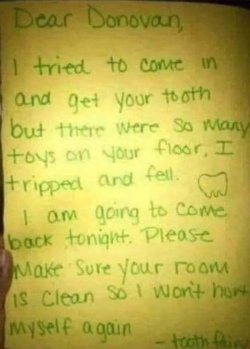 Dear Donovan,
I tried to come in
and get your tooth
but there were so many
toys on your floor, I
tripped and fell.
I am going to come
back tonight. Please
Make sure your room
is clean so I won't hurt
myself again
- tooth fairy